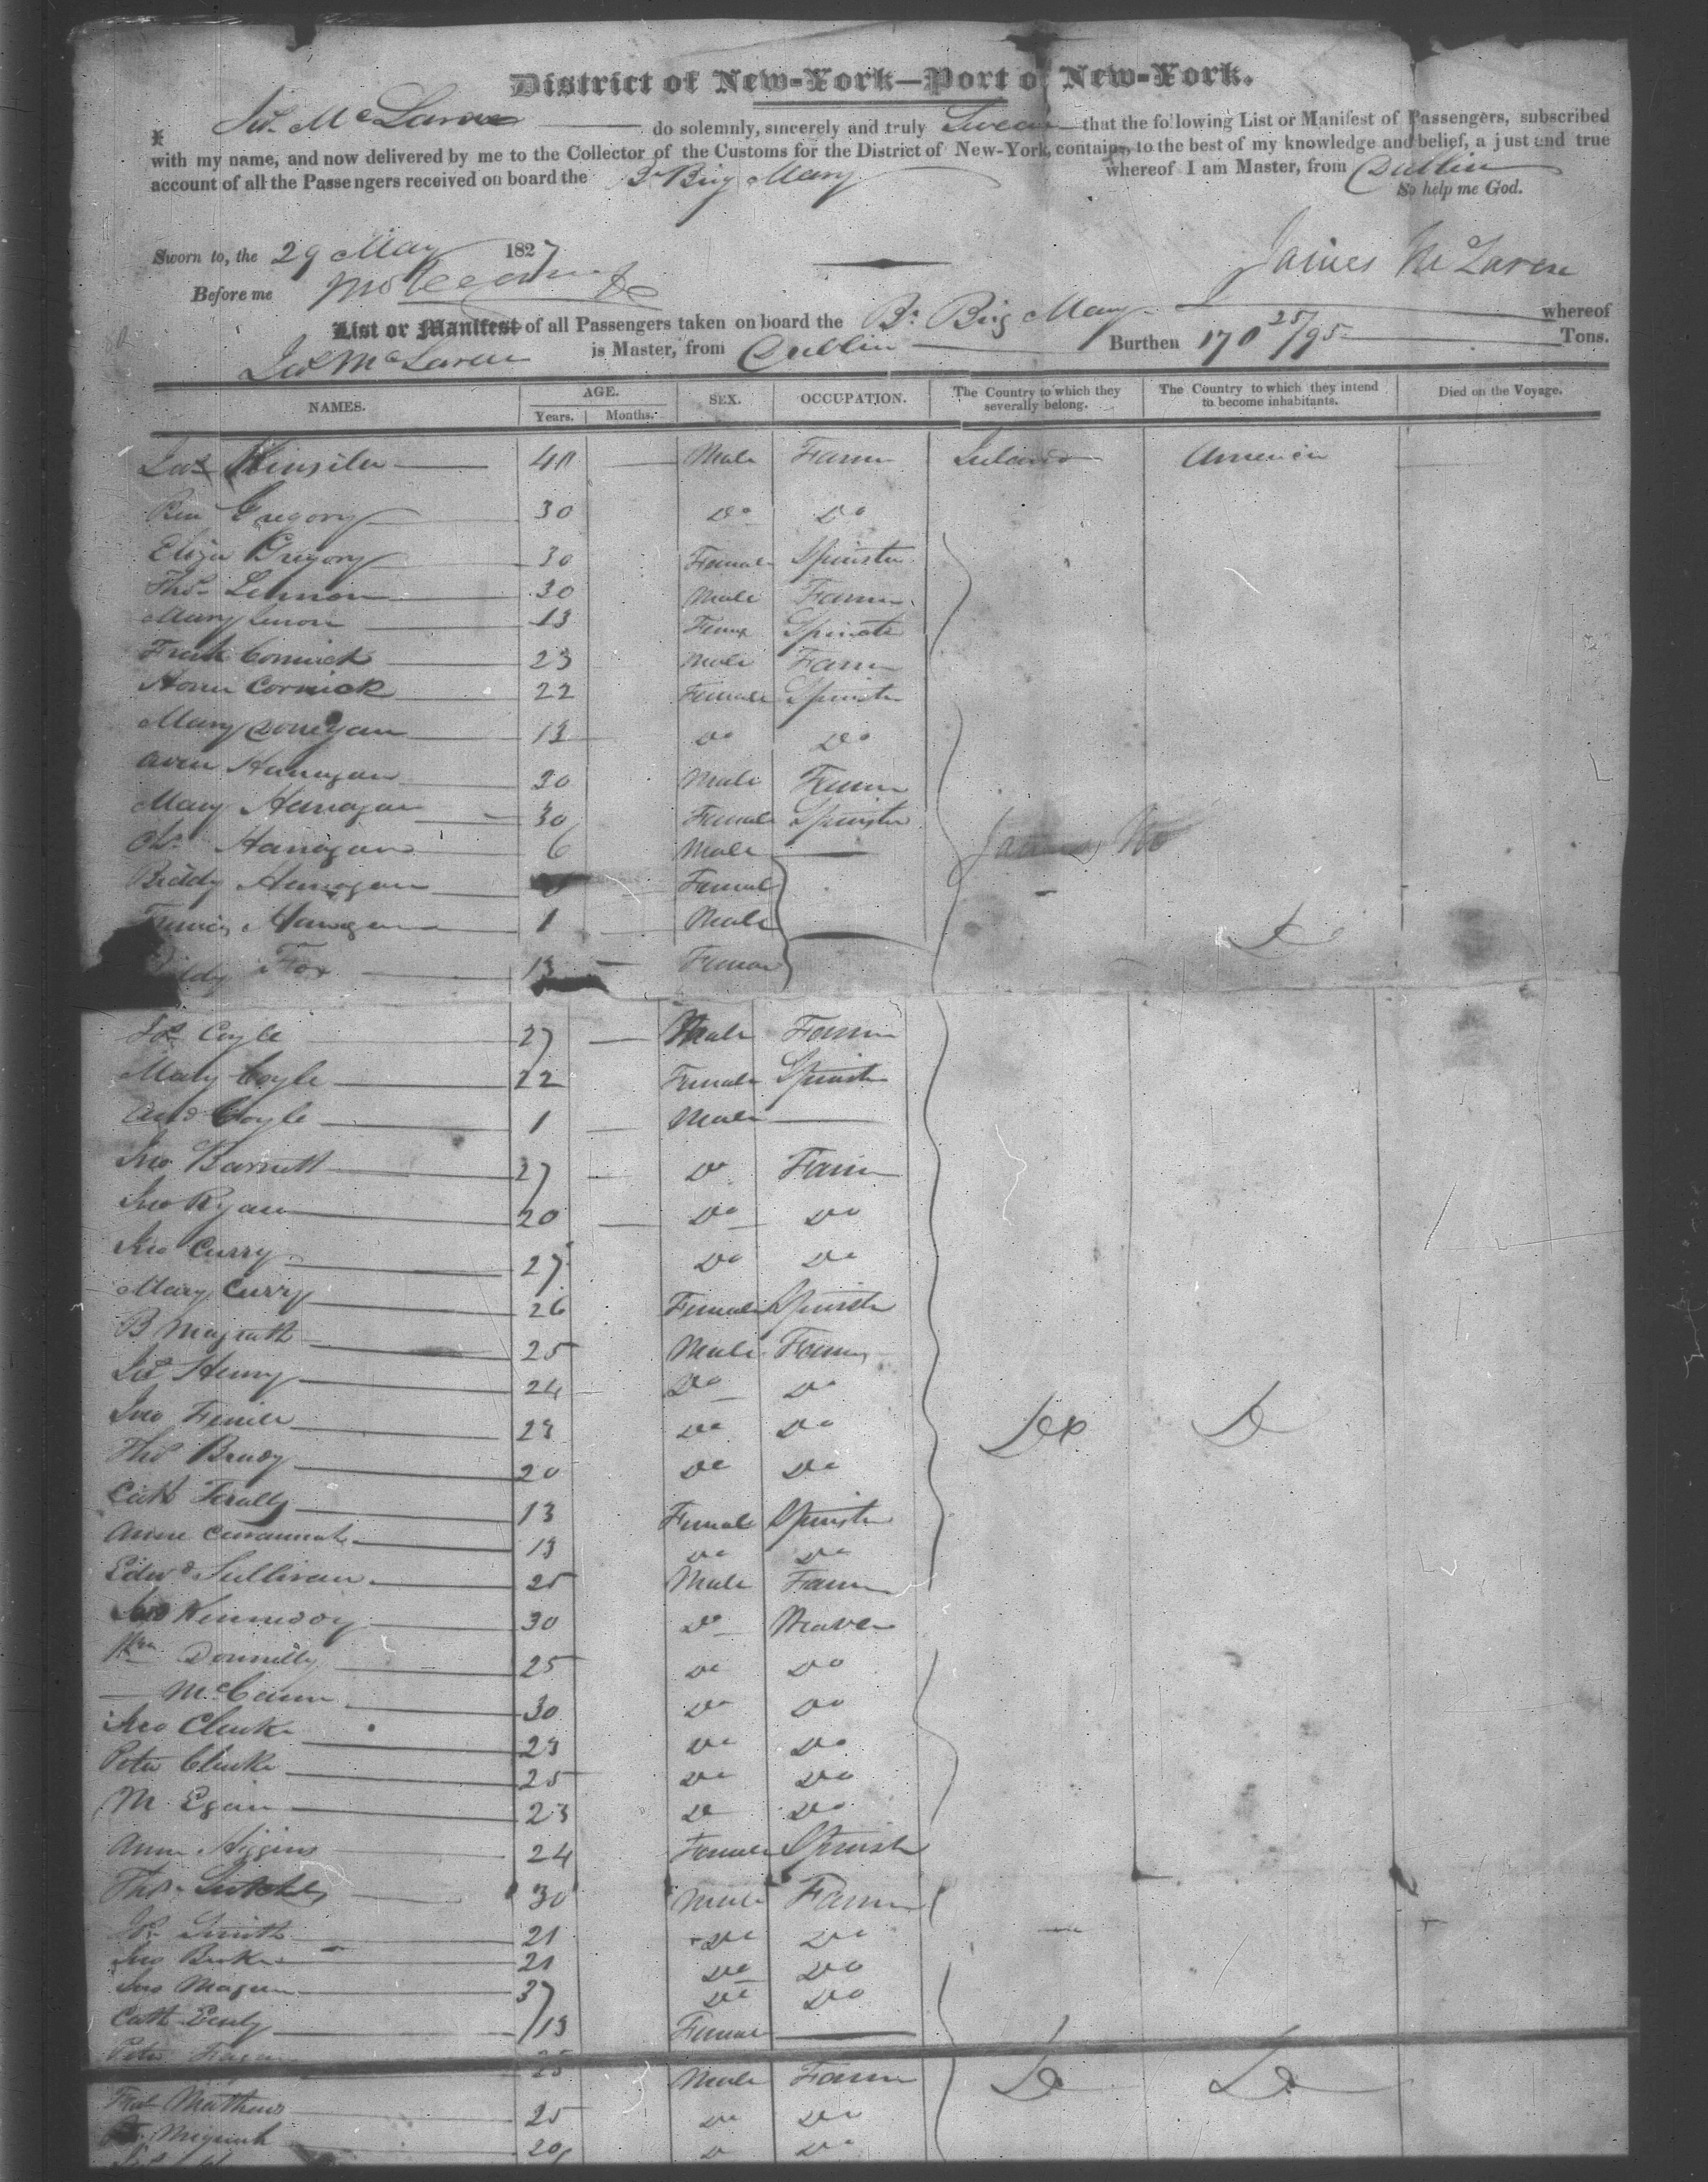 District of New-York—Port of New-York.
I Jas. McLaren do solemnly, sincerely and truly Swear that the following List or Manifest of Passengers, subscribed
with my name, and now delivered by me to the Collector of the Customs for the District of New-York, contains, to the best of my knowledge and belief, a just and true
account of all the Passengers received on board the Br Brig Mary whereof I am Master, from Dublin
So help me God.
Sworn to, the 29 May 1827
James McLaren
Before me
List or Manifest of all Passengers taken on board the Br Brig Mary whereof
Jas McLaren is Master, from Dublin Burthen 170 25/95 Tons.
NAMES. AGE. Years. Months. SEX. OCCUPATION. The Country to which they severally belong. The Country to which they intend to become inhabitants. Died on the Voyage.
40 Male Farmr Ireland America
Ben Gregory 30 Do Do
Eliza Gregory 30 Female Spinster
Thos Lennon 30 Male Farmr
Mary Lenon 13 Female Spinster
Frank Cormick 23 Male Farmr
Honer Cormick 22 Female Spinster
Mary Donegan 13 Do Do
Owen Hanagan 30 Male Farmr
Mary Hanagan 30 Female Spinster
Chs Hanagan 6 Male
Biddy Hanagan Female
Francis Hanagan 1 Male Do
Fox 13 Female
Jas Coyle 27 Male Farmr
Mary Coyle 22 Female Spinster
And Coyle 1 Male
Jno Barnett 27 Do Farmr
Jno Ryan 20 Do Do
Jno Curry 27 Do Do
Mary Curry 26 Female Spinster
B Magrath 25 Male Farmr
Jas Henry 24 Do Do
Jno 23 Do Do Do Do
Thos Brady 20 Do Do
Cath 13 Female Spinster
Anne Cavannah 13 Do Do
Edwd Sullivan 25 Male Farmr
Jno Kennedy 30 Do Weaver
Wm Donnelly 25 Do Do
— McCann 30 Do Do
Jno Clarke 23 Do Do
Peter Clarke 25 Do Do
M Egan 23 Do Do
Ann Higgins 24 Female Spinstr
Thos 30 Male Farmr
Jas Smith 21 Do Do
Jno 21 Do Do
Jno Magen 37 Do Do
Cath 13 Female
Peter 25 Male Farmr Do Do
Mathews 25 Do Do
20 Do Do